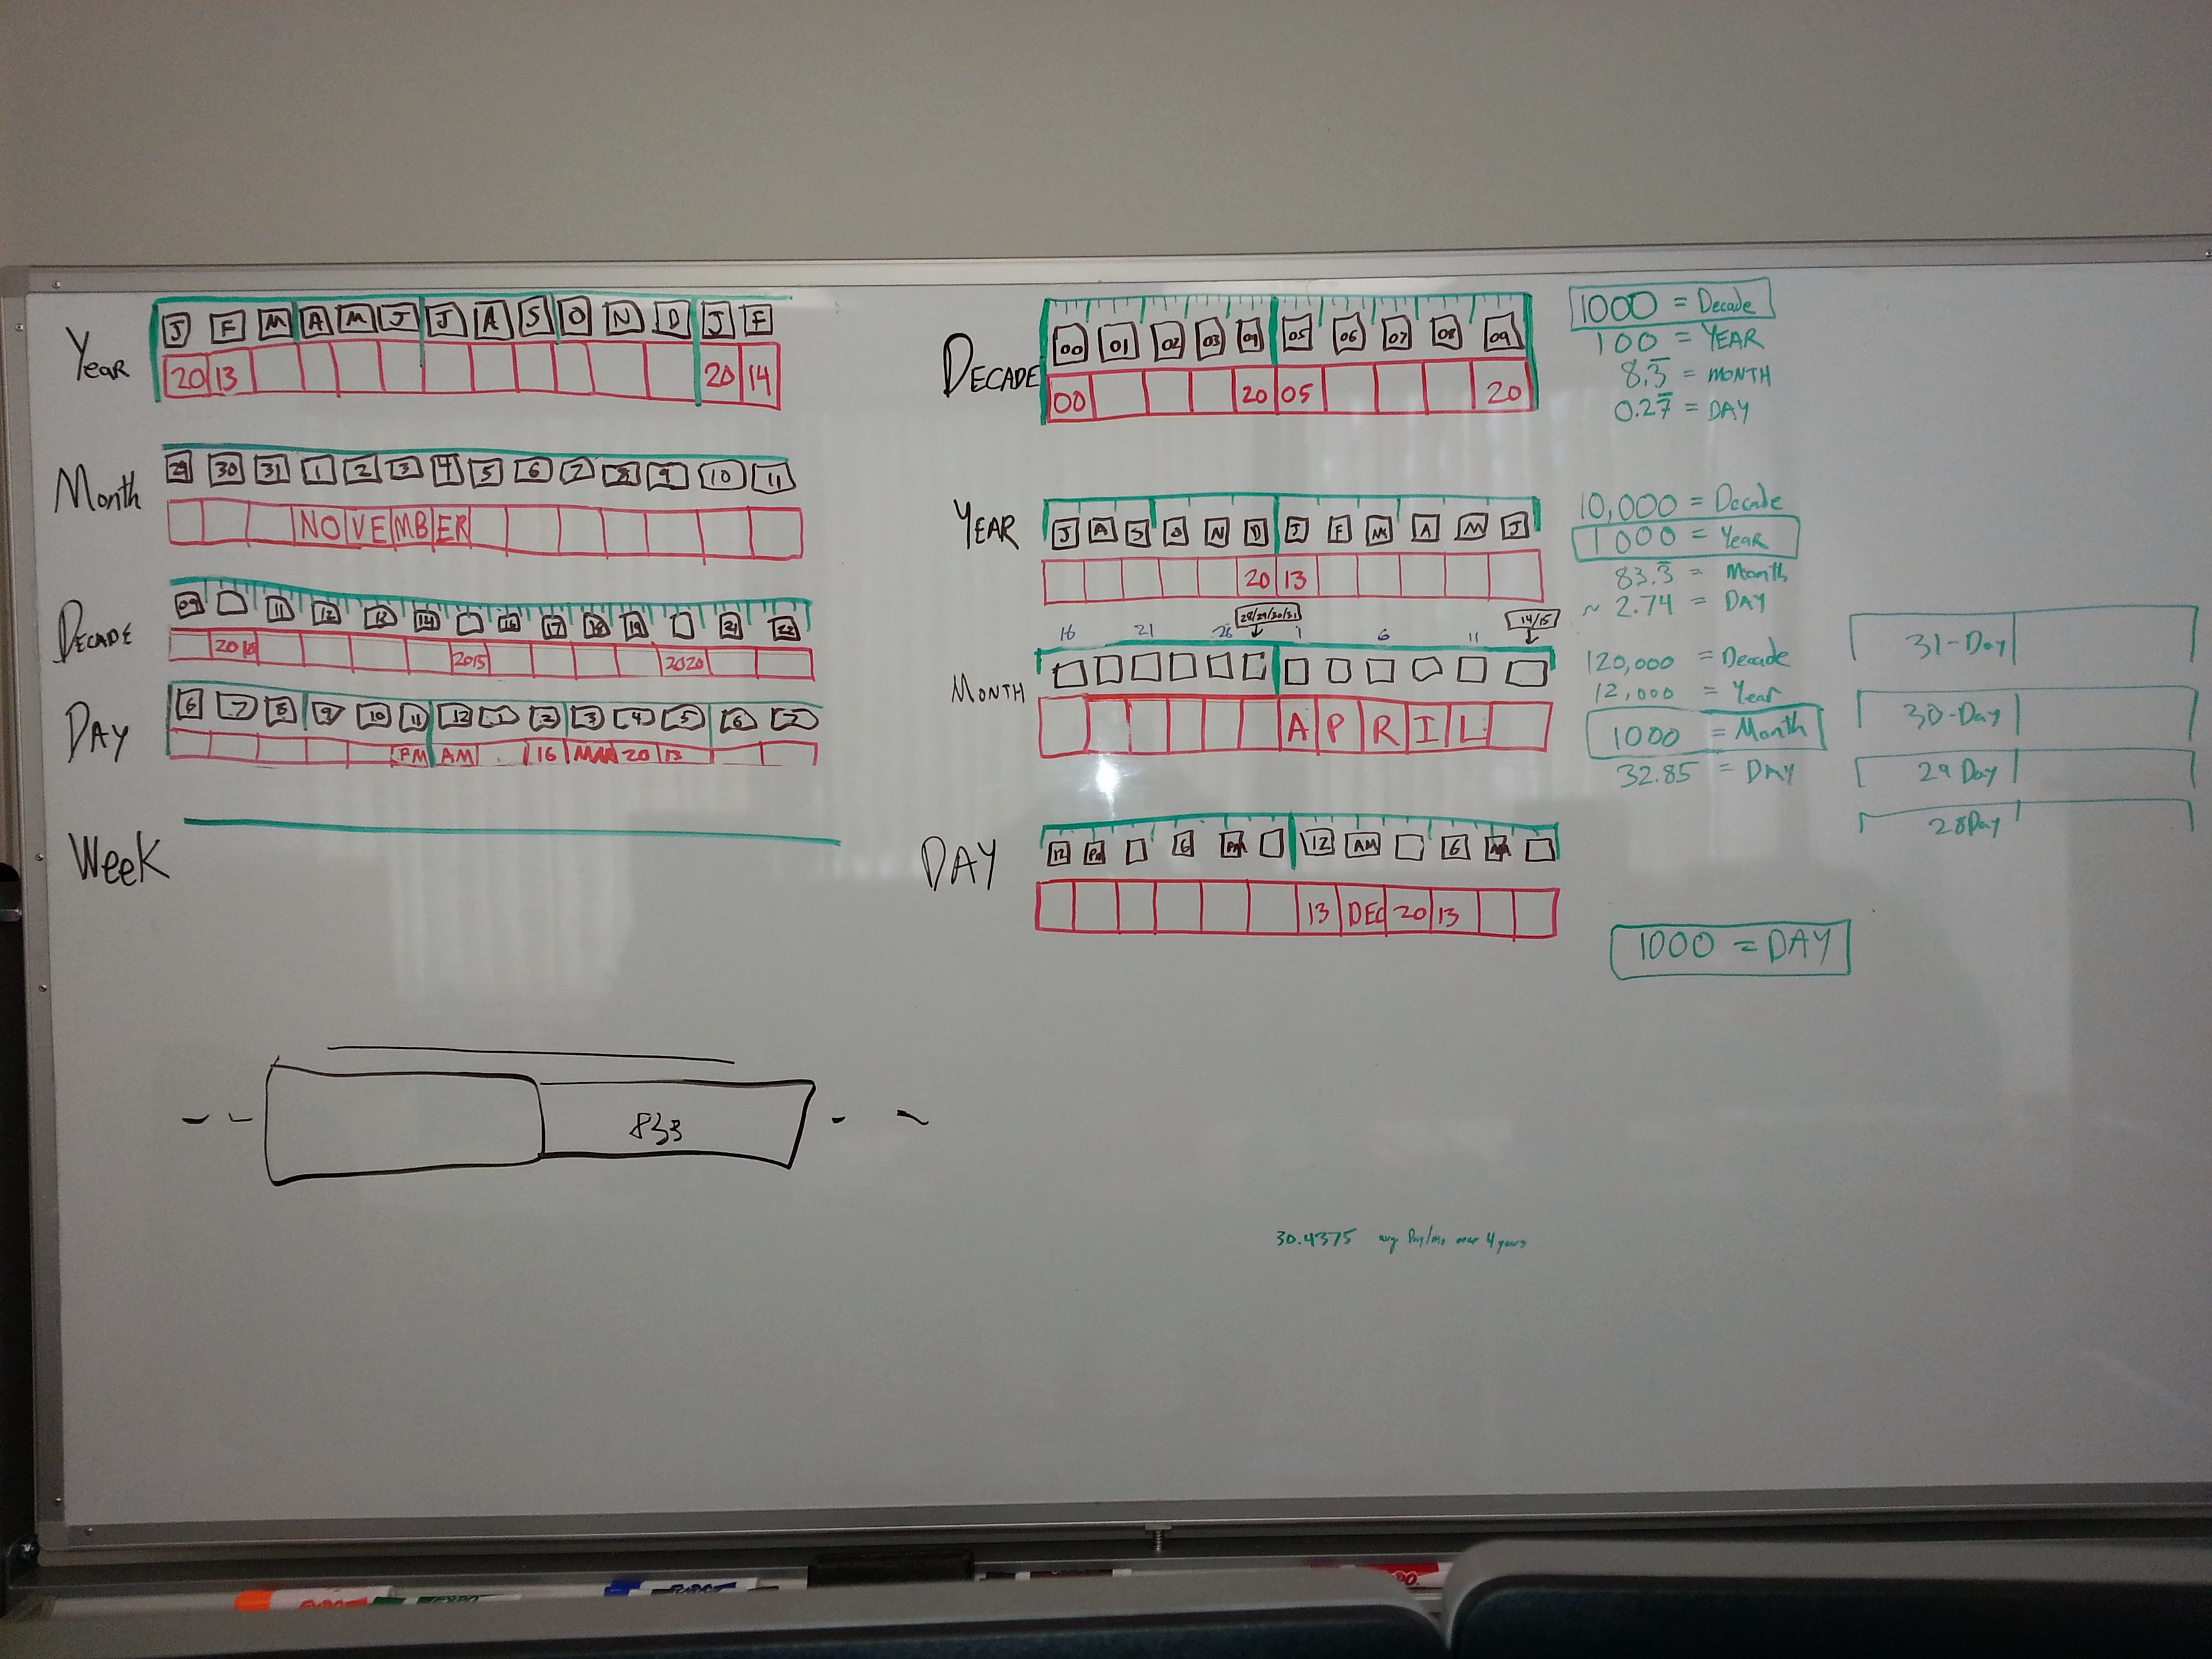 Year
J F M A M J J A S O N D J F
20 13 20 14
Month
29 30 31 1 2 3 4 5 6 7 8 9 10 11
NOVEMBER
DECADE
09 11 12 13 14 16 17 18 19 21 22
2010 2015 2020
DAY
6 7 8 9 10 11 12 1 2 3 4 5 6 7
PM AM 16 MAR 20 13
Week
833
DECADE
00 01 02 03 04 05 06 07 08 09
00 20 05 20
YEAR
J A S O N D J F M A M J
20 13
28/29/30/31 14/15
16 21 26 1 6 11
MONTH
APRIL
DAY
12 PM 6 PM 12 AM 6 AM
13 DEC 20 13
1000 = Decade
100 = YEAR
8.3̅ = MONTH
0.27̅ = DAY
10,000 = Decade
1000 = Year
83.3̅ = Month
~ 2.74 = DAY
120,000 = Decade
12,000 = Year
1000 = Month
32.85 = DAY
31-Day
30-Day
29 Day
28 Day
1000 = DAY
30.4375 avg Day/mo over 4 years
EXPO